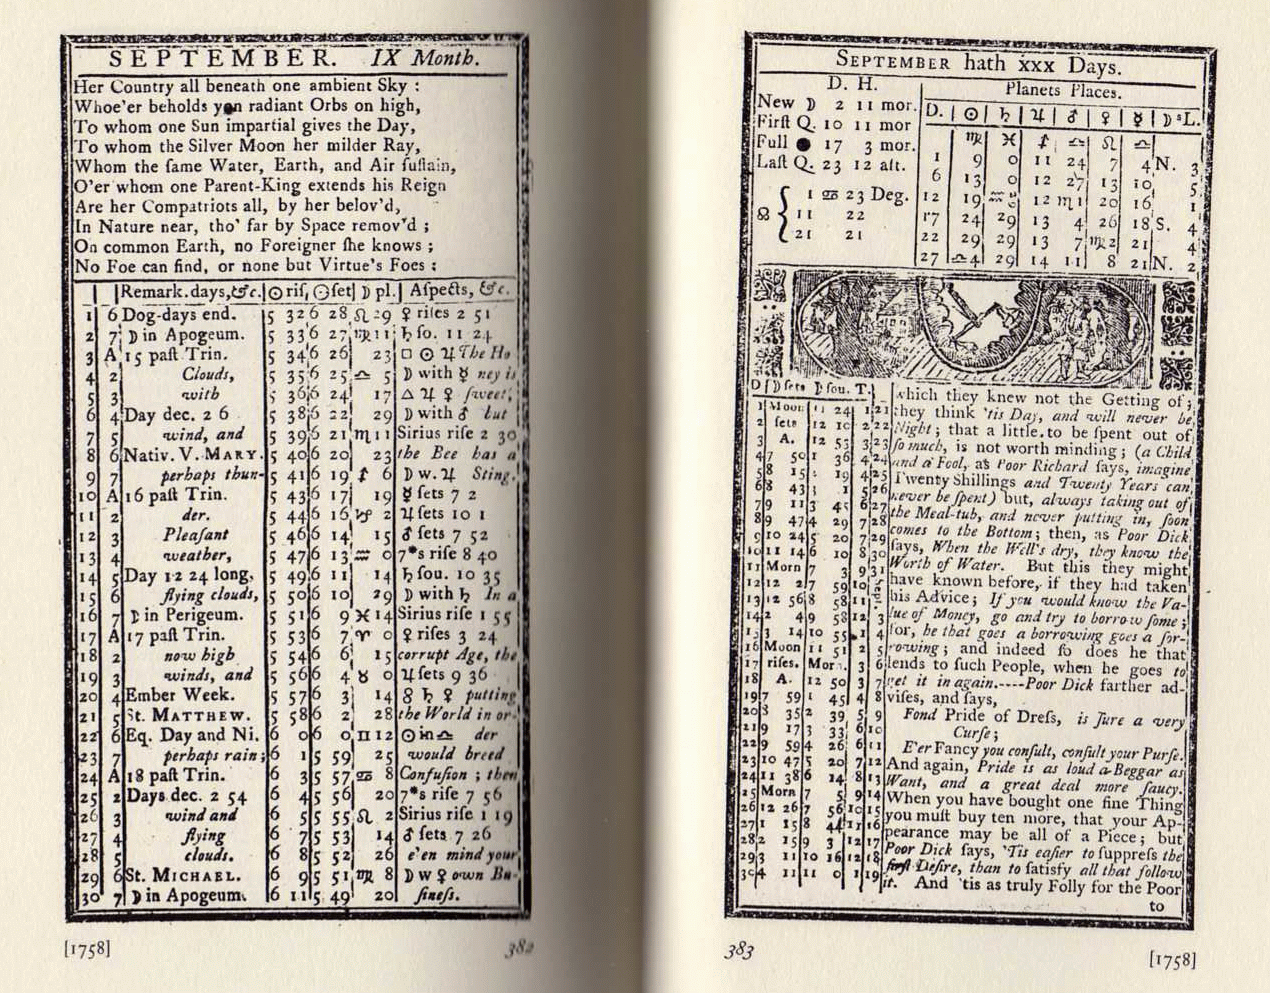 SEPTEMBER. IX Month.
Her Country all beneath one ambient Sky :
Whoe'er beholds yon radiant Orbs on high,
To whom one Sun impartial gives the Day,
To whom the Silver Moon her milder Ray,
Whom the ſame Water, Earth, and Air ſuſtain,
O'er whom one Parent-King extends his Reign
Are her Compatriots all, by her belov'd,
In Nature near, tho' far by Space remov'd ;
On common Earth, no Foreigner ſhe knows ;
No Foe can find, or none but Virtue's Foes :
Remark. days, &c. ☉ riſ, ☉ ſet ☽ pl. Aſpects, &c.
1 6 Dog-days end. 5 32 6 28 ♌ 29 ♀ riſes 2 51
2 7 ☽ in Apogeum. 5 33 6 27 ♍ 11 ♄ ſo. 11 24
3 A 15 paſt Trin. 5 34 6 26 23 □ ☉ ♃ The Ho
4 2 Clouds, 5 35 6 25 ♎ 5 ☽ with ☿ ney is
5 3 with 5 36 6 24 17 △ ♃ ♀ ſweet,
6 4 Day dec. 2 6 5 38 6 22 29 ☽ with ♂ but
7 5 wind, and 5 39 6 21 ♏ 11 Sirius riſe 2 30
8 6 Nativ. V. MARY. 5 40 6 20 23 the Bee has a
9 7 perhaps thun- 5 41 6 19 ♐ 6 ☽ w. ♃ Sting.
10 A 16 paſt Trin. 5 43 6 17 19 ☿ ſets 7 2
11 2 der. 5 44 6 16 ♑ 2 ♃ ſets 10 1
12 3 Pleaſant 5 46 6 14 15 ♂ ſets 7 52
13 4 weather, 5 47 6 13 ♒ 0 7*s riſe 8 40
14 5 Day 12 24 long, 5 49 6 11 14 ♄ ſou. 10 35
15 6 flying clouds, 5 50 6 10 29 ☽ with ♄ In a
16 7 ☽ in Perigeum. 5 51 6 9 ♓ 14 Sirius riſe 1 55
17 A 17 paſt Trin. 5 53 6 7 ♈ 0 ♀ riſes 3 24
18 2 now high 5 54 6 6 15 corrupt Age, the
19 3 winds, and 5 56 6 4 ♉ 0 ♃ ſets 9 36
20 4 Ember Week. 5 57 6 3 14 ☍ ♄ ♀ putting
21 5 St. MATTHEW. 5 58 6 2 28 the World in or-
22 6 Eq. Day and Ni. 6 0 6 0 ♊ 12 ☉ in ♎ der
23 7 perhaps rain; 6 1 5 59 25 would breed
24 A 18 paſt Trin. 6 3 5 57 ♋ 8 Confuſion ; then
25 2 Days dec. 2 54 6 4 5 56 20 7*s riſe 7 56
26 3 wind and 6 5 5 55 ♌ 2 Sirius riſe 1 19
27 4 flying 6 7 5 53 14 ♂ ſets 7 26
28 5 clouds. 6 8 5 52 26 e'en mind your
29 6 St. MICHAEL. 6 9 5 51 ♍ 8 ☽ w ♀ own Bu-
30 7 ☽ in Apogeum. 6 11 5 49 20 ſineſs.
[1758] 382
SEPTEMBER hath xxx Days.
D. H.
New ☽ 2 11 mor.
Firſt Q. 10 11 mor
Full ● 17 3 mor.
Laſt Q. 23 12 aft.
☊ { 1 ♋ 23 Deg.
11 22
21 21
Planets Places.
D. ☉ ♄ ♃ ♂ ♀ ☿ ☽'sL.
♍ ♓ ♐ ♎ ♌ ♎
1 9 0 11 24 7 4 N. 3
6 13 0 12 27 13 10 5
12 19 12 ♏ 1 20 16 1
17 24 29 13 4 26 18 S. 4
22 29 29 13 7 ♍ 2 21 4
27 ♎ 4 29 14 11 8 21 N. 2
D ☽ ſets ☽ ſou. T.
1 Moon 11 24 1 21
2 ſets 12 10 2 22
3 A. 12 53 3 23
4 7 50 1 36 4 24
5 8 15 19 4 25
6 8 43 3 1 5 26
7 9 11 3 45 6 27
8 9 47 4 29 7 28
9 10 24 5 20 7 29
10 11 14 6 10 8 30
11 Morn 7 3 9 31
12 12 2 7 59 10
13 12 56 8 58 11
14 2 4 9 58 12 3
15 3 14 10 55 1 4
16 Moon 11 51 2 5
17 riſes. Morn. 3 6
18 A. 12 50 3 7
19 7 59 1 45 4 8
20 8 35 2 39 5 9
21 9 17 3 33 6 10
22 9 59 4 26 6 11
23 10 47 5 20 7 12
24 11 38 6 14 8 13
25 Morn 7 5 9 14
26 12 26 7 56 10 15
27 1 15 8 44 11 16
28 2 15 9 3 12 17
29 3 11 10 16 12 18
30 4 11 11 0 1 19
which they knew not the Getting of;
they think 'tis Day, and will never be
Night; that a little to be ſpent out of
ſo much, is not worth minding; (a Child
and a Fool, as Poor Richard ſays, imagine
Twenty Shillings and Twenty Years can
never be ſpent) but, always taking out of
the Meal-tub, and never putting in, ſoon
comes to the Bottom; then, as Poor Dick
ſays, When the Well's dry, they know the
Worth of Water. But this they might
have known before, if they had taken
his Advice; If you would know the Va-
lue of Money, go and try to borrow ſome;
for, he that goes a borrowing goes a ſor-
rowing; and indeed ſo does he that
lends to ſuch People, when he goes to
get it in again.----Poor Dick farther ad-
viſes, and ſays,
Fond Pride of Dreſs, is ſure a very
Curſe;
E'er Fancy you conſult, conſult your Purſe.
And again, Pride is as loud a Beggar as
Want, and a great deal more ſaucy.
When you have bought one fine Thing
you muſt buy ten more, that your Ap-
pearance may be all of a Piece; but
Poor Dick ſays, 'Tis eaſier to ſuppreſs the
firſt Deſire, than to ſatisfy all that follow
it. And 'tis as truly Folly for the Poor
to
383 [1758]